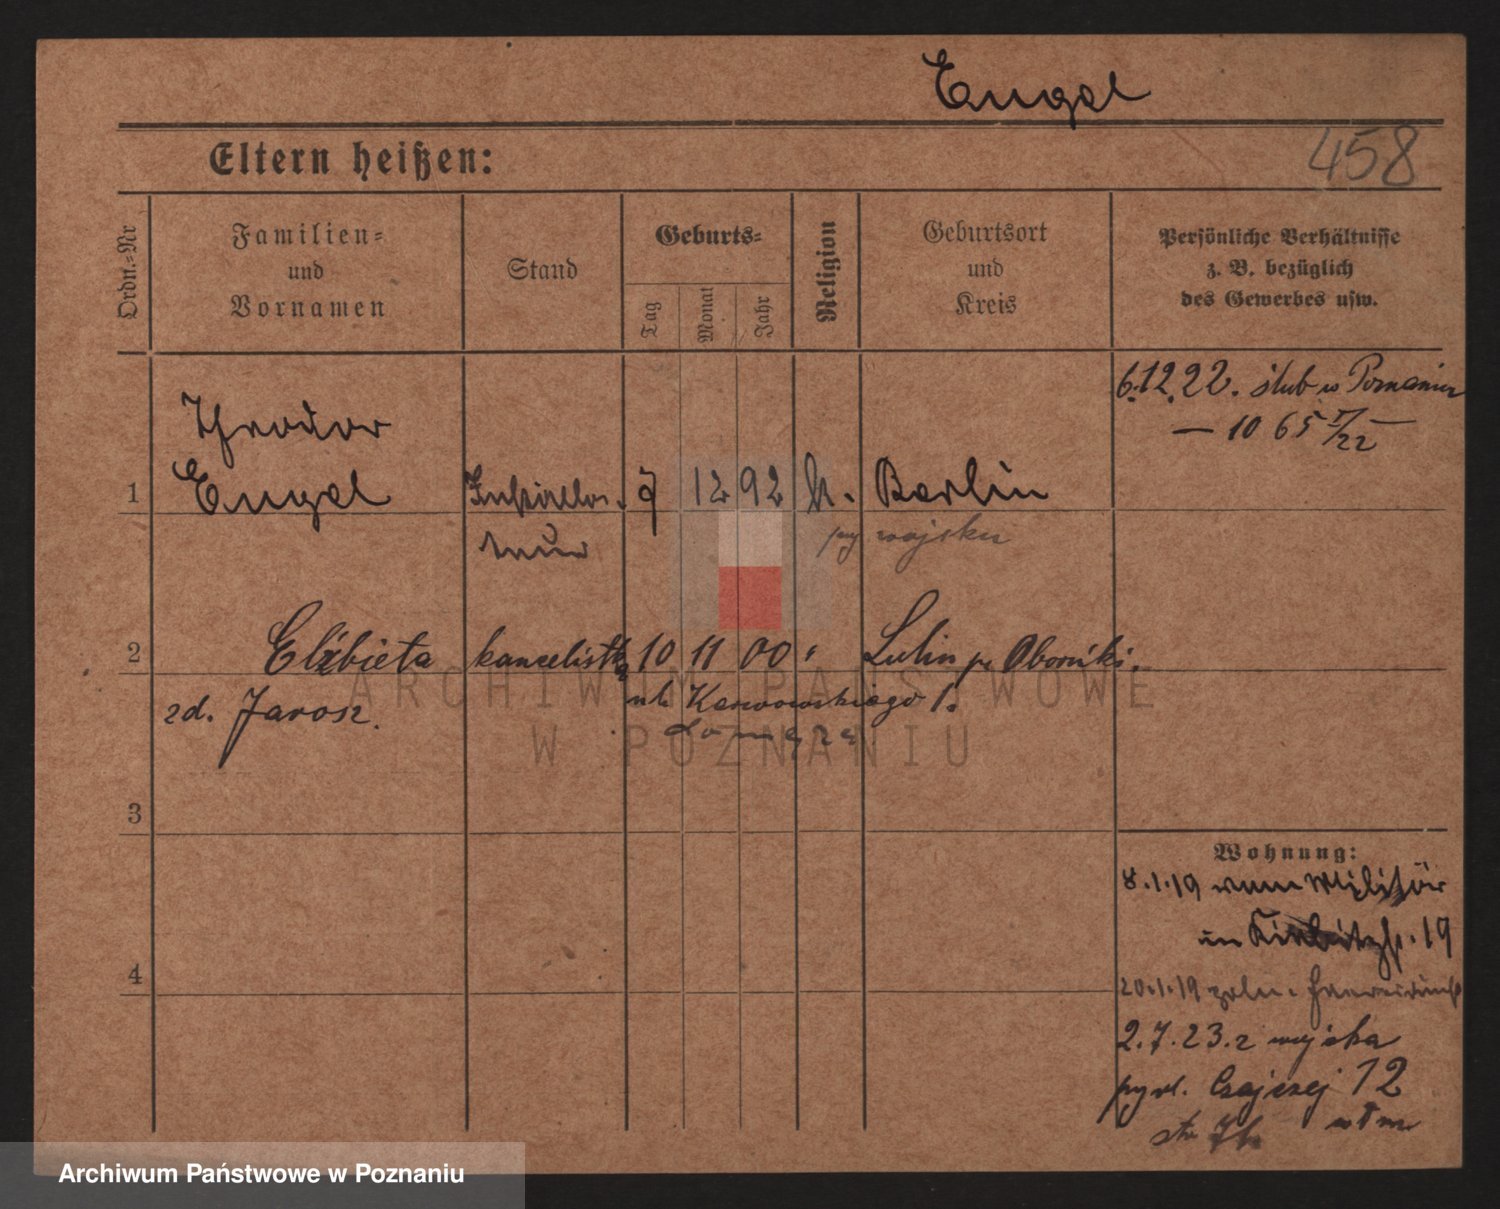 Engel
Eltern heißen:
458
Ordn.-Nr
Familien-
und
Vornamen
Stand
Geburts-
Tag
Monat
Jahr
Religion
Geburtsort
und
Kreis
Persönliche Verhältnisse
z. B. bezüglich
des Gewerbes usw.
6.12.22. ślub w Poznaniu
— 1065 /22 —
Theodor
1 Engel 7 12 92 k. Berlin
przy wojsku
2 Elżbieta kancelistka 10 11 00 " Lulin p. Oborniki.
zd. Jarosz. 1.
ARCHIWUM PAŃSTWOWE
W POZNANIU
3
Wohnung:
8.1.19 vom Militär
in 19
4
20.1.19 poln.
2.7.23. z wojska
Czajczej 12
Archiwum Państwowe w Poznaniu